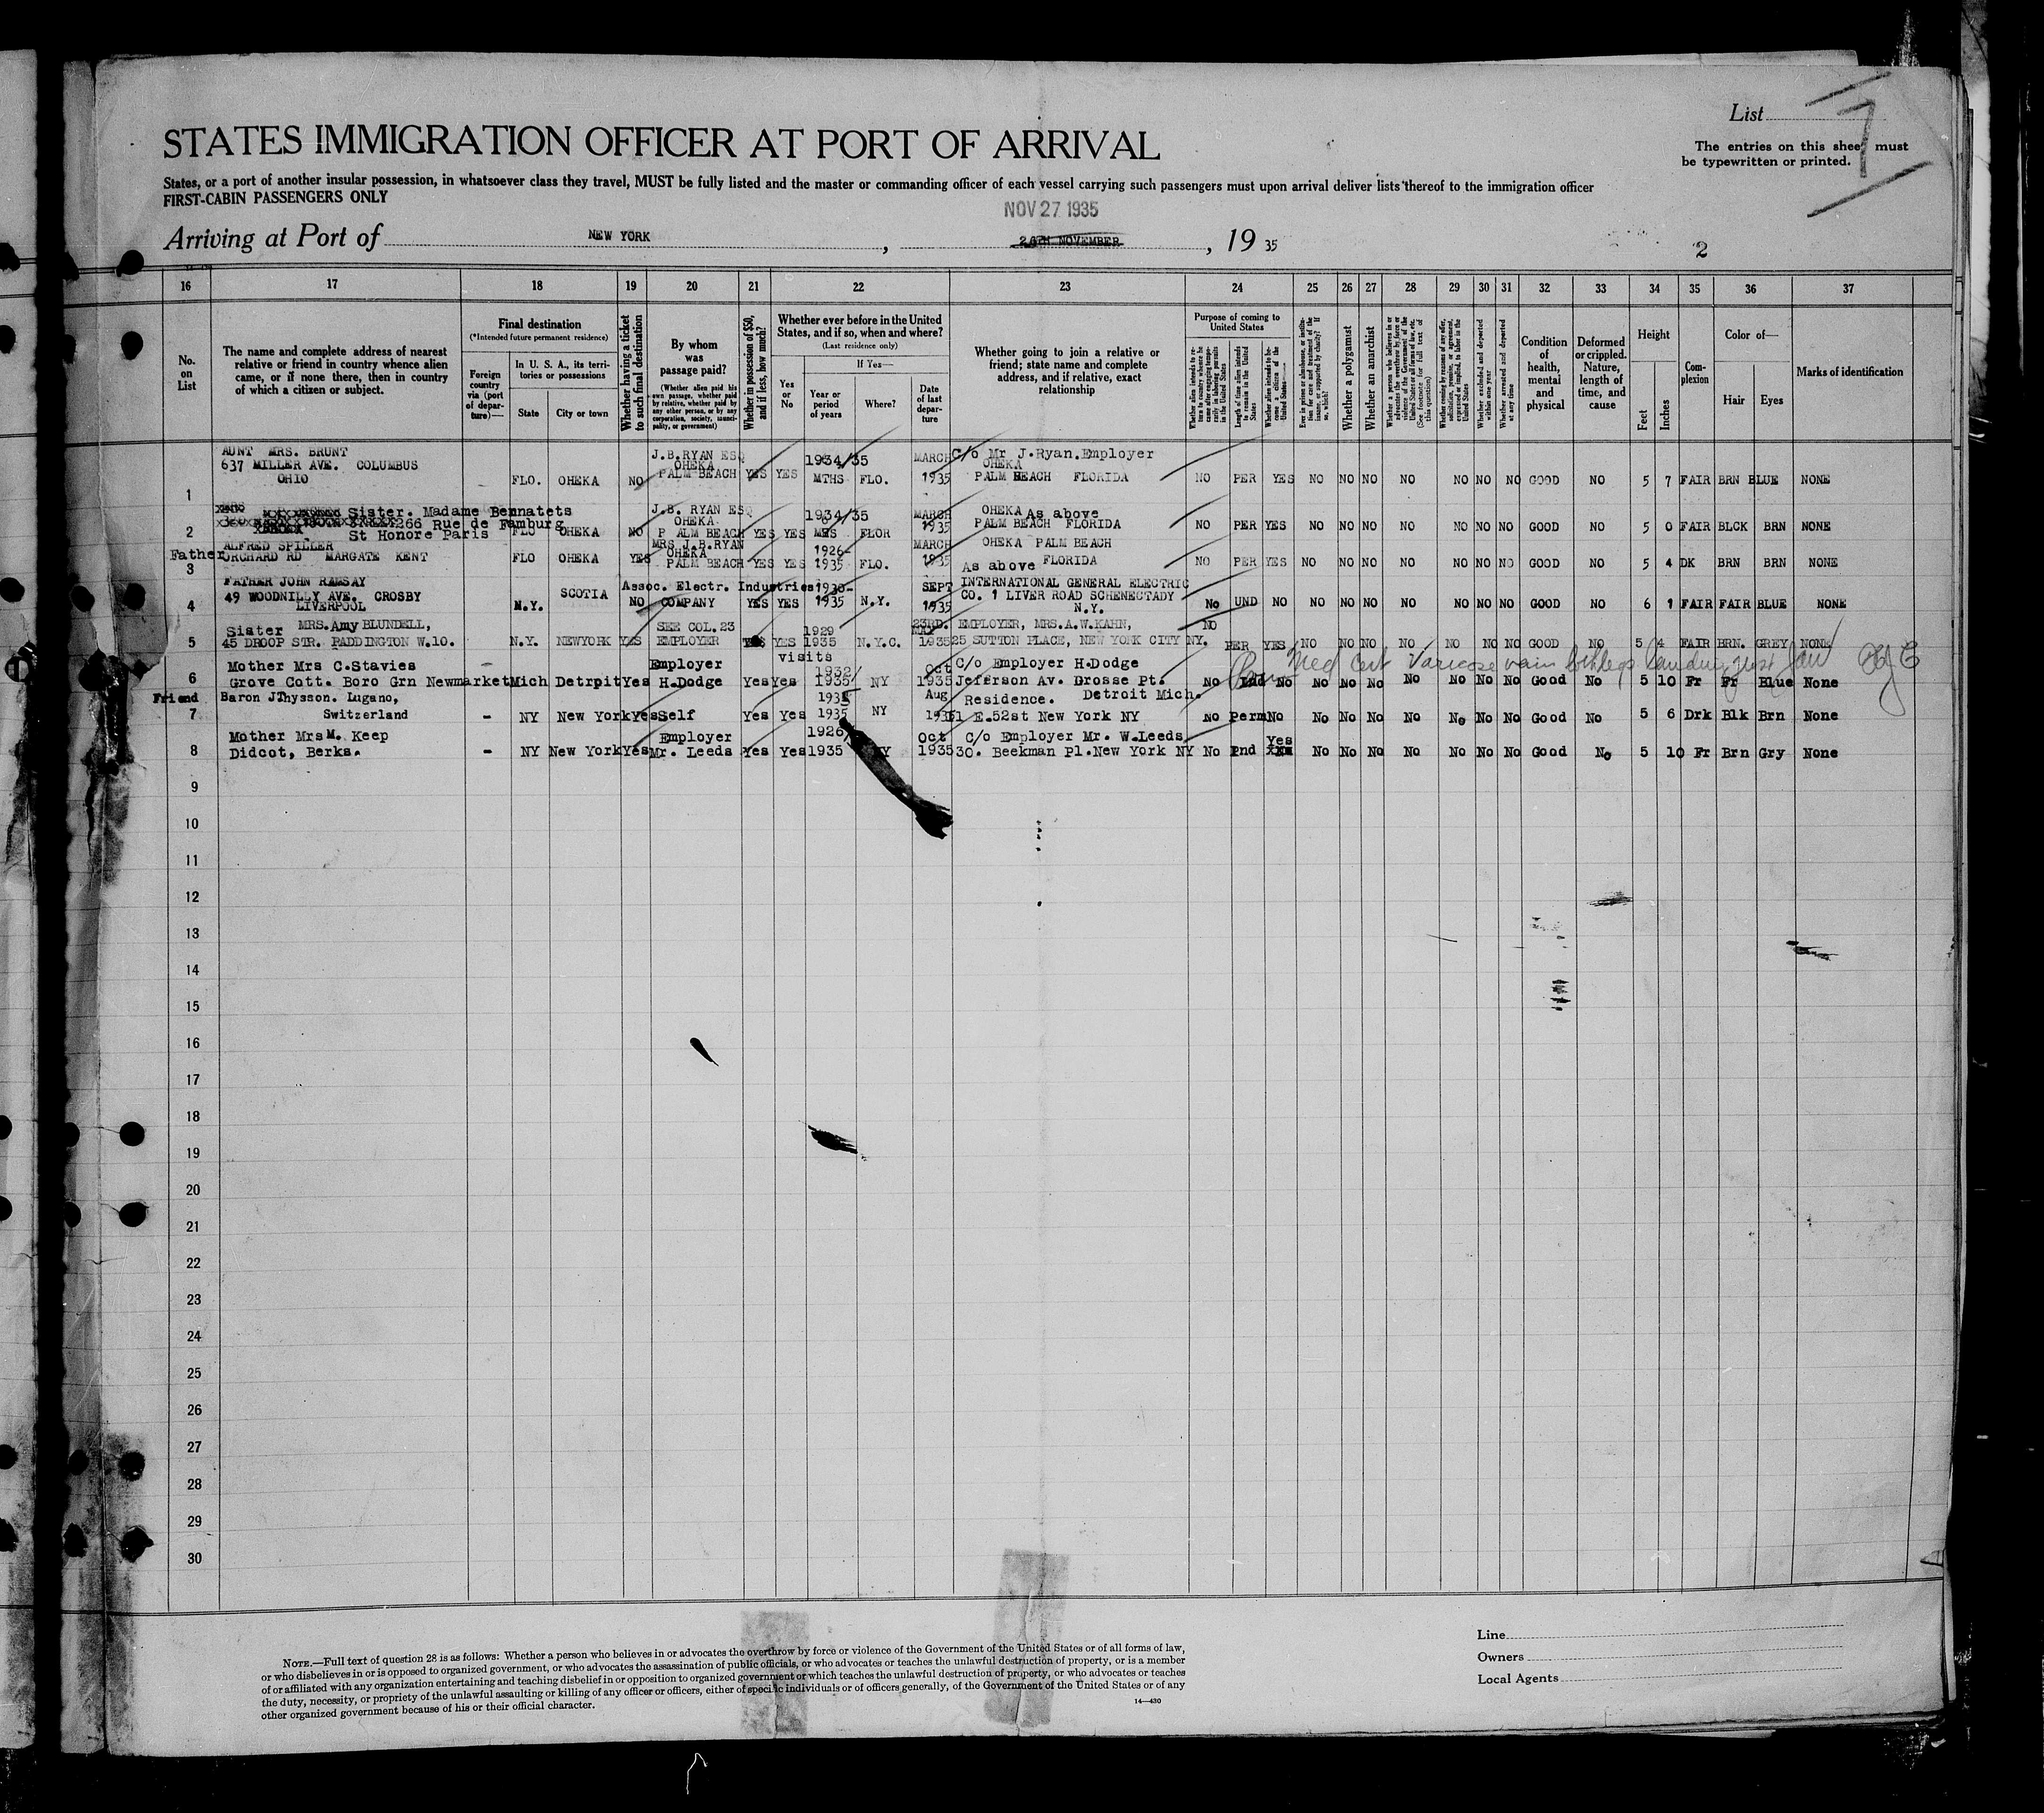 List 7
STATES IMMIGRATION OFFICER AT PORT OF ARRIVAL
The entries on this sheet must
be typewritten or printed.
States, or a port of another insular possession, in whatsoever class they travel, MUST be fully listed and the master or commanding officer of each vessel carrying such passengers must upon arrival deliver lists thereof to the immigration officer
FIRST-CABIN PASSENGERS ONLY
NOV 27 1935
Arriving at Port of NEW YORK, 26TH NOVEMBER, 19 35
2
16 17 18 19 20 21 22 23 24 25 26 27 28 29 30 31 32 33 34 35 36 37
No. on List
The name and complete address of nearest relative or friend in country whence alien came, or if none there, then in country of which a citizen or subject.
Final destination
(*Intended future permanent residence)
Foreign country via (port of departure)—
In U. S. A., its territories or possessions
State
City or town
Whether having a ticket to such final destination
By whom was passage paid?
(Whether alien paid his own passage, whether paid by relative, whether paid by any other person, or by any corporation, society, municipality, or government)
Whether in possession of $50, and if less, how much?
Whether ever before in the United States, and if so, when and where?
(Last residence only)
If Yes—
Yes or No
Year or period of years
Where?
Date of last departure
Whether going to join a relative or friend; state name and complete address, and if relative, exact relationship
Purpose of coming to United States
Length of time alien intends to remain in the United States
Whether alien intends to become a citizen of the United States
Whether a polygamist
Whether an anarchist
Whether excluded and deported within one year
Whether arrested and deported at any time
Condition of health, mental and physical
Deformed or crippled. Nature, length of time, and cause
Height
Feet
Inches
Complexion
Color of—
Hair
Eyes
Marks of identification
AUNT MRS. BRUNT J.B.RYAN ESQ 1934/35 MARCH C/o Mr J.Ryan.Employer
637 MILLER AVE. COLUMBUS OHEKA OHEKA
1 OHIO FLO. OHEKA NO PALM BEACH YES YES MTHS FLO. 1935 PALM BEACH FLORIDA NO PER YES NO NO NO NO NO NO NO GOOD NO 5 7 FAIR BRN BLUE NONE
Sister. Madame Bennatets J.B. RYAN ESQ 1934/35 MARCH OHEKA As above
266 Rue de Famburg OHEKA
2 St Honore Paris FLO OHEKA NO P ALM BEACH YES YES FLOR 1935 PALM BEACH FLORIDA NO PER YES NO NO NO NO NO NO NO GOOD NO 5 0 FAIR BLCK BRN NONE
ALFRED SPILLER MRS J.B.RYAN 1926- MARCH OHEKA PALM BEACH
Father ORCHARD RD MARGATE KENT OHEKA
3 FLO OHEKA YES PALM BEACH YES YES 1935 FLO. 1935 As above FLORIDA NO PER YES NO NO NO NO NO NO NO GOOD NO 5 4 DK BRN BRN NONE
FATHER JOHN RAMSAY Assoc. Electr. Industries 1930- SEPT INTERNATIONAL GENERAL ELECTRIC
49 WOODNILLY AVE. CROSBY SCOTIA CO. 1 LIVER ROAD SCHENECTADY
4 LIVERPOOL N.Y. NO COMPANY YES YES 1935 N.Y. 1935 N.Y. No UND NO NO NO NO NO NO NO NO GOOD NO 6 1 FAIR FAIR BLUE NONE
Sister MRS.Amy BLUNDELL, SEE COL.23 1929 23RD. EMPLOYER, MRS.A.W.KAHN, NO
5 45 DROOP STR. PADDINGTON W.10. N.Y. NEWYORK YES EMPLOYER YES 1935 N.Y.C. 1935 25 SUTTON PLACE, NEW YORK CITY NY. PER YES NO NO NO NO NO NO NO GOOD NO 5 4 FAIR BRN. GREY NONE
Med Cert Varicose vein both legs
Mother Mrs C.Stavies - Employer visits 1932/ Oct C/o Employer H.Dodge
6 Grove Cott. Boro Grn Newmarket Mich Detrpit Yes H.Dodge Yes Yes 1935 NY 1935 Jeferson Av. Grosse Pt. No Ind No No No No No No No No Good No 5 10 Fr Fr Blue None
Friend Baron J.Thysson. Lugano, Aug Residence. Detroit Mich.
7 Switzerland - NY New York Yes Self Yes Yes 1935 NY 1935 1 E.52st New York NY no Perm No No No No No No No No Good No 5 6 Drk Blk Brn None
Mother Mrs M. Keep Employer 1926/ Oct C/o Employer Mr. W.Leeds Yes
8 Didcot, Berks. - NY New York Yes Mr. Leeds Yes Yes 1935 NY 1935 30. Beekman Pl.New York NY No Ind No No No No No No No Good No 5 10 Fr Brn Gry None
9
10
11
12
13
14
15
16
17
18
19
20
21
22
23
24
25
26
27
28
29
30
NOTE.—Full text of question 28 is as follows: Whether a person who believes in or advocates the overthrow by force or violence of the Government of the United States or of all forms of law,
or who disbelieves in or is opposed to organized government, or who advocates the assassination of public officials, or who advocates or teaches the unlawful destruction of property, or is a member
of or affiliated with any organization entertaining and teaching disbelief in or opposition to organized government or which teaches the unlawful destruction of property, or who advocates or teaches
the duty, necessity, or propriety of the unlawful assaulting or killing of any officer or officers, either of specific individuals or of officers generally, of the Government of the United States or of any
other organized government because of his or their official character.
14—430
Line
Owners
Local Agents